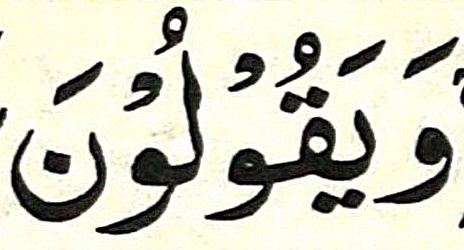 وَيَقُوْلُوْنَ